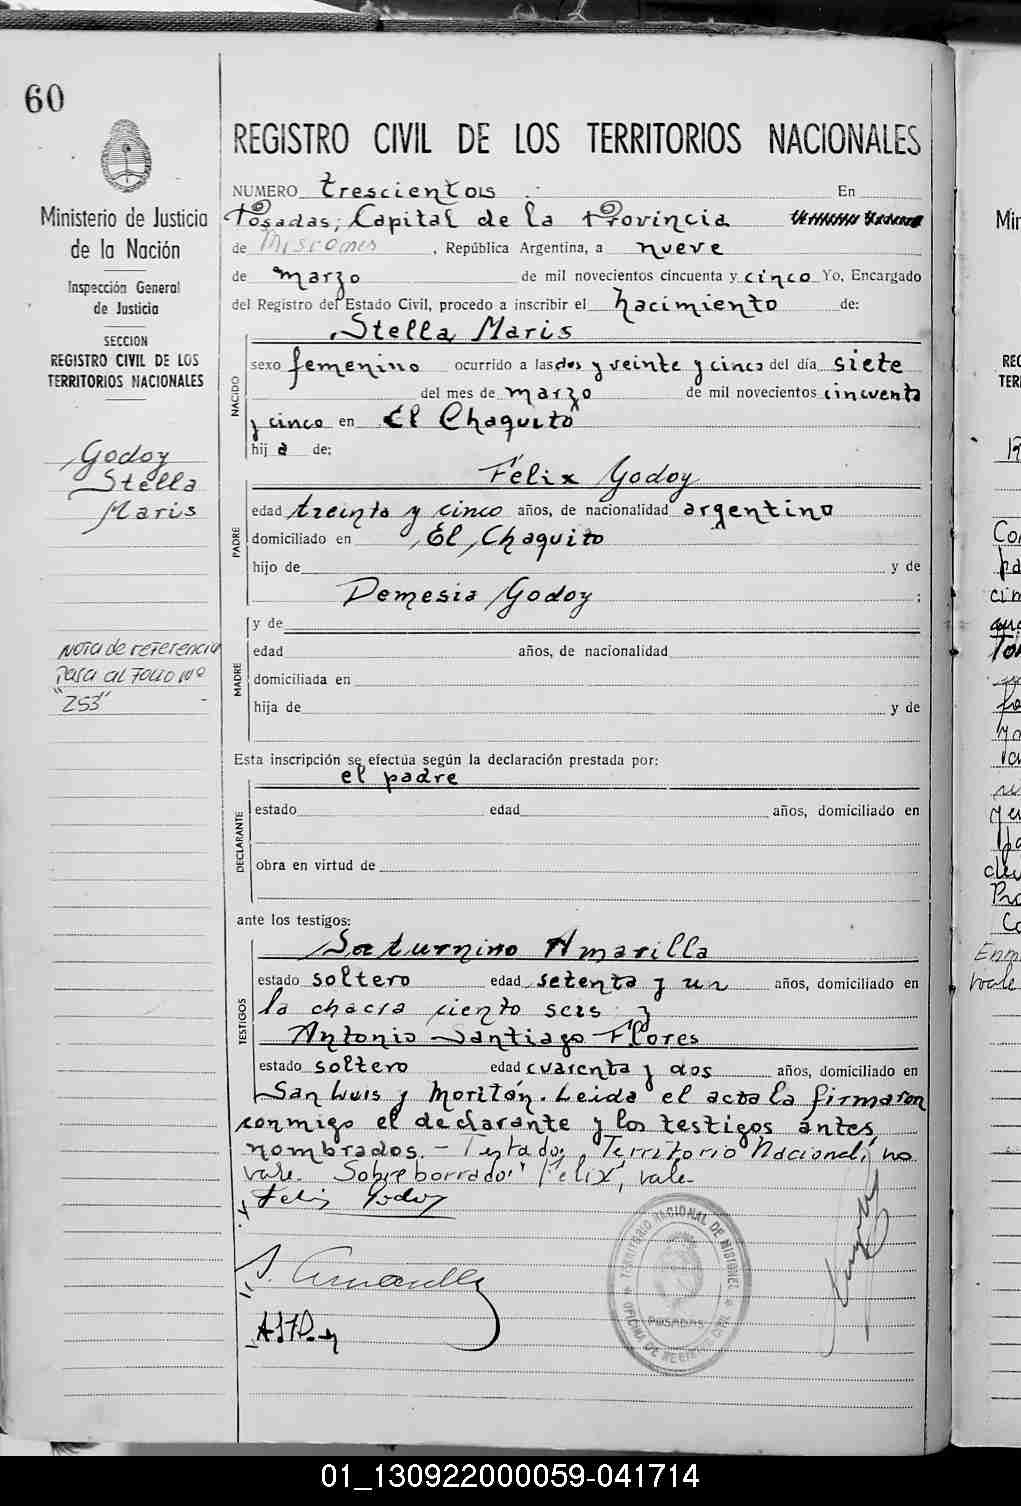 60
Ministerio de Justicia
de la Nación
Inspección General
de Justicia
SECCION
REGISTRO CIVIL DE LOS
TERRITORIOS NACIONALES
Godoy
Stella
Maris
Nota de referencia
Pasa al Folio Nº
"253"
REGISTRO CIVIL DE LOS TERRITORIOS NACIONALES
NUMERO trescientos En
Posadas; Capital de la Provincia
de Misiones, República Argentina, a nueve
de marzo de mil novecientos cincuenta y cinco Yo, Encargado
del Registro del Estado Civil, procedo a inscribir el nacimiento de:
Stella Maris
NACIDO
sexo femenino ocurrido a las dos y veinte y cinco del día siete
del mes de marzo de mil novecientos cincuenta
y cinco en El Chaquito
hij a de:
Félix Godoy
PADRE
edad treinta y cinco años, de nacionalidad argentino
domiciliado en El Chaquito
hijo de y de
Demesia Godoy ;
y de
MADRE
edad años, de nacionalidad
domiciliada en
hija de y de
Esta inscripción se efectúa según la declaración prestada por:
el padre
DECLARANTE
estado edad años, domiciliado en
obra en virtud de
ante los testigos:
Saturnino Amarilla
TESTIGOS
estado soltero edad setenta y un años, domiciliado en
la chacra ciento seis y
Antonio Santiago Flores
estado soltero edad cuarenta y dos años, domiciliado en
San Luis y Moritán. Leida el acta la firmaron
conmigo el declarante y los testigos antes
nombrados. - Testado: Territorio Nacional, no
vale. Sobre borrado: "Felix", vale.
Felix Godoy
S. Amarilla
TERRITORIO NACIONAL DE MISIONES
POSADAS
OFICINA DE REGISTRO CIVIL
01_130922000059-041714